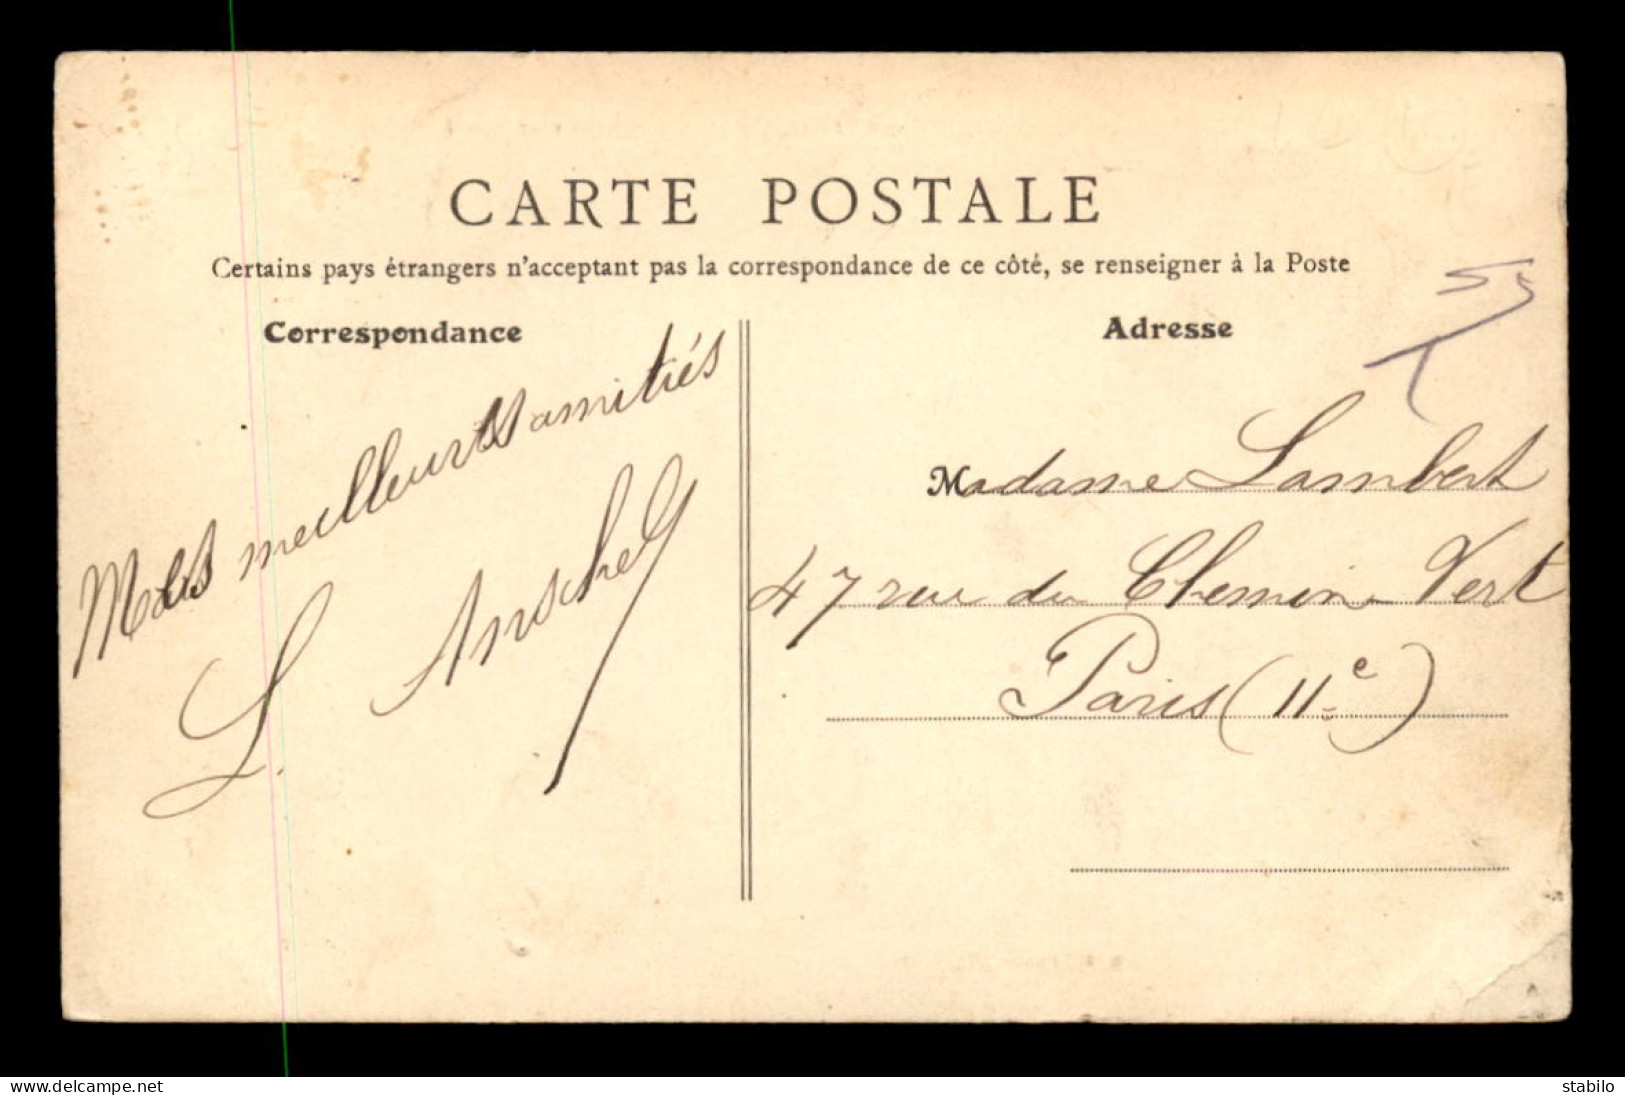 CARTE POSTALE
Certains pays étrangers n'acceptant pas la correspondance de ce côté, se renseigner à la Poste
Correspondance
Mes meilleures amitiés
L. Anschel
Adresse
55
Madame Lambert
47 rue du Chemin Vert
Paris (11e)
delcampe.net
stabilo